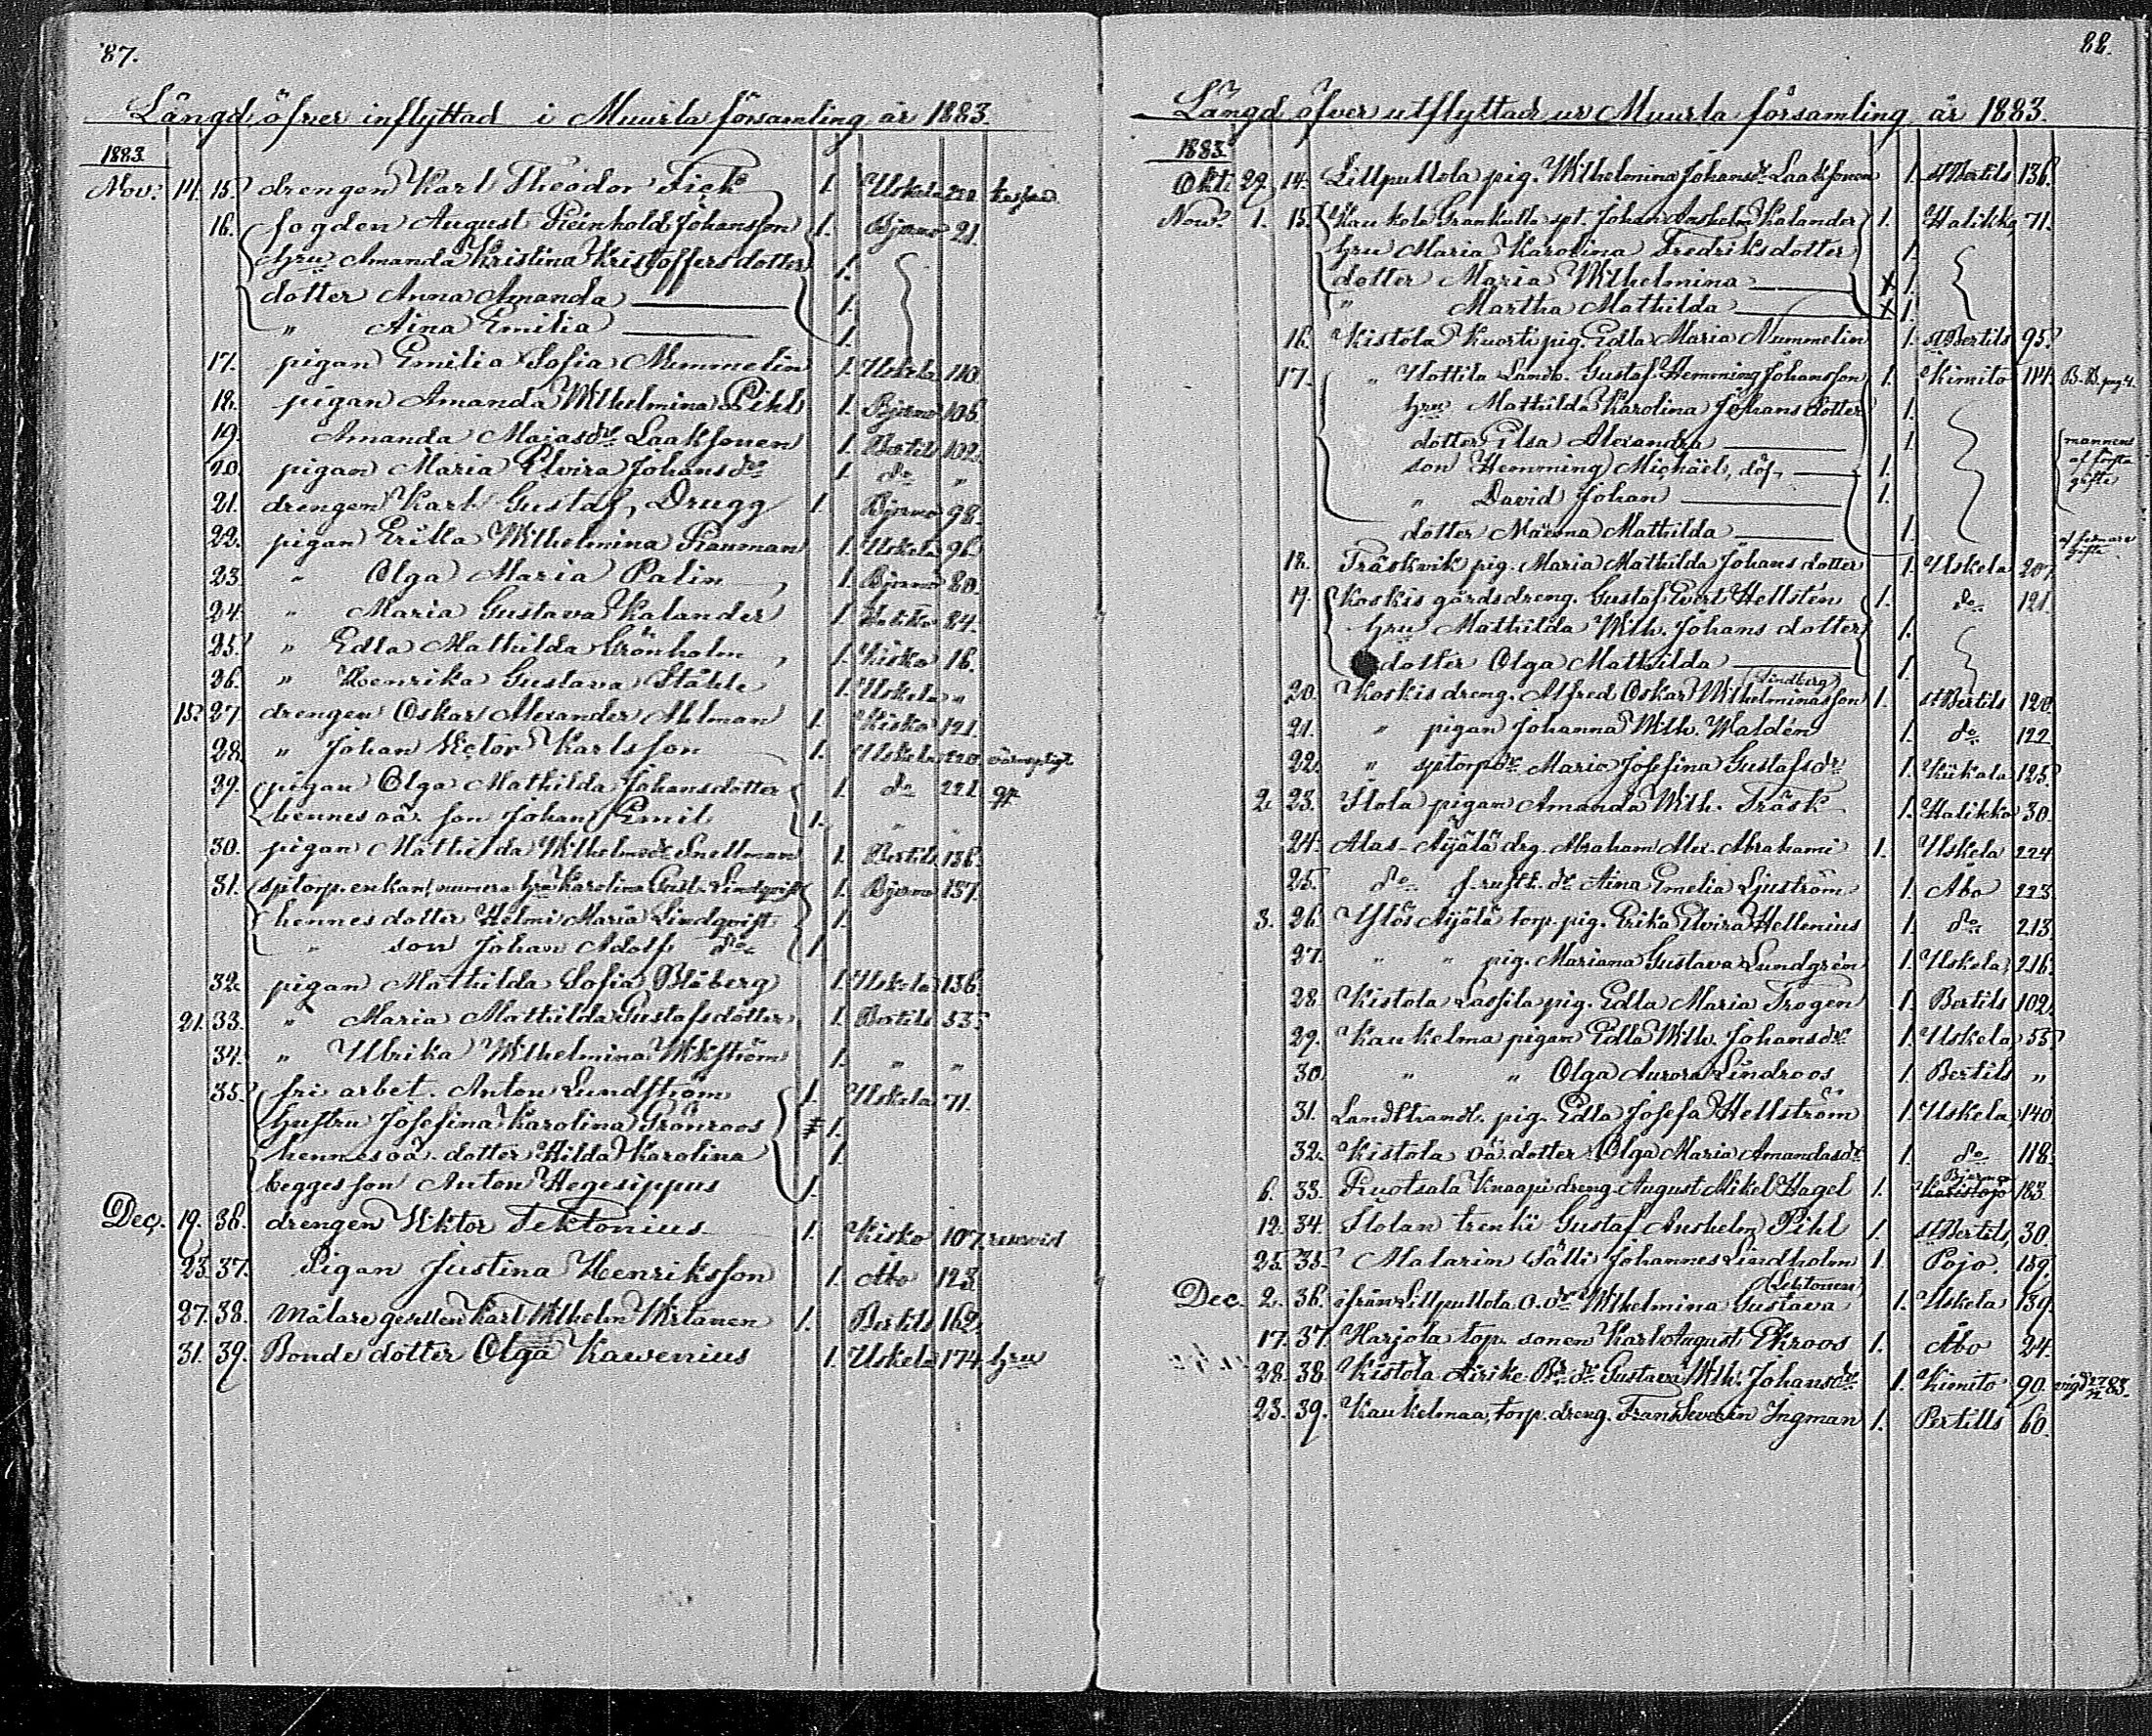 87.
Längd öfver inflyttad i Muurla församling år 1883.
1883.
Nov. 14. 15. drengen Karl Theodor Fick 1. Uskela 220.
16. fogden August Reinhold Johansson 1. Bjerno 21.
hru Amanda Kristina Kristoffersdotter 1.
dotter Anna Amanda 1.
" Aina Emilia 1.
17. pigan Emilia Sofia Nummelin 1. Uskela 110.
18. pigan Amanda Wilhelmina Pihl 1. Bjerno 105.
19. Amanda Majasdr Laaksonen 1. Bertils 102.
20. pigan Maria Elvira Johansdr 1. do "
21. drengen Karl Gustaf Drugg 1. Bjerno 98.
22. pigan Erika Wilhelmina Rauman 1. Uskela 96.
23. " Olga Maria Palin 1. Bjerno 80.
24. " Maria Gustava Kalander 1. Halikko 84.
25. " Edla Mathilda Grönholm 1. Kisko 16.
26. " Henrika Gustava Ståhle 1. Uskela "
15. 27. drengen Oskar Alexander Ahlman 1. Kisko 121.
28. " Johan Victor Karlsson 1. Uskela 220. värnepligt
29. pigan Olga Mathilda Johansdotter 1. do 221.
hennes oä. son Johan Emil 1. " "
30. pigan Mathilda Wilhelmsdr Snellman 1. Bertils 136.
31. sptorp. enkan, numera hru Karolina Gust. Lindqvist 1. Bjerno 137.
hennes dotter Helmi Maria Lindqvist 1.
" son Johan Adolf do 1.
32. pigan Mathilda Sofia Blåberg 1. Uskela 136.
21. 33. " Maria Mathilda Gustafsdotter 1. Bertils 53.
34. " Ulrika Wilhelmina Wikström 1. " "
35. fri arbet. Anton Lundström 1. Uskela 71.
hustru Josefina Karolina Grönroos 1.
hennes oä. dotter Hilda Karolina 1.
begges son Anton Hegesippus 1.
Dec. 19. 36. drengen Viktor Tektonius 1. Kisko 107. reservist
23. 37. Pigan Justina Henriksson 1. Åbo 123.
27. 38. Målare gesellen Karl Wilhelm Wirtanen 1. Bertils 162.
31. 39. Bonde dotter Olga Kawenius 1. Uskela 174. hru
88.
Längd öfver utflyttad ur Muurla församling år 1883.
1883.
Okt. 29. 14. Lillpullola pig. Wilhelmina Johansdr Laaksonen 1. St Bertils 136.
Nov. 1. 15. Kaukola Grankulla spt. Johan Anshelm Kalander 1. Halikko 71.
hru Maria Karolina Fredriksdotter 1.
dotter Maria Wilhelmina x 1.
" Martha Mathilda x 1.
16. Kistola Kuorti pig. Edla Maria Nummelin 1. St Bertils 95.
17. " Uottila Landb. Gustaf Hemming Johansson 1. Kimito 114. B. B. pag. 4.
hru Mathilda Karolina Johansdotter 1.
dotter Elsa Alexandra 1. mannens
son Hemming Michäel, döf, 1. af första
gifte
" David Johan 1.
dotter Naëma Mathilda 1. af sednare
gifte
18. Träskvik pig. Maria Mathilda Johansdotter 1. Uskela 207.
19. Koskis gårdsdreng. Gustaf Evert Hellstén 1. do 121.
hru Mathilda Wilh. Johansdotter 1.
dotter Olga Mathilda 1.
(Lindberg)
20. Koskis dreng. Alfred Oskar Wilhelminasson 1. St Bertils 120.
21. " pigan Johanna Wilh. Waldén 1. do 122
22. " sptorpdr Maria Josefina Gustafsdr 1. Kiikala 125.
2. 23. Ilola pigan Amanda Wilh. Träsk 1. Halikko 30.
24. Alas-Äijälä drg. Abraham Alex. Abrahami 1. Uskela 224
25. do Aina Emelia Ljuström 1. Åbo 223.
3. 26. Ylös Äijälä torp. pig. Erika Elvira Hellenius 1. do 213.
27. " " pig. Mariana Gustava Lundgrén 1. Uskela 216.
28. Kistola Lassila pig. Edla Maria Trogen 1. Bertils 102.
29. Kaukelma pigan Edla Wilh. Johansdr 1. Uskela 55.
30. " " Olga Aurora Lindroos 1. Bertils "
31. Landthandl. pig. Edla Josefa Hellström 1. Uskela 140.
32. Kistola oä. dotter Olga Maria Amandasdr 1. do 118.
Bjerno
6. 33. Ruotsala Knaapi dreng August Mikel Hagel 1. Karislojo 183.
12. 34. Ilolan trenki Gustaf Anshelm Pihl 1. St Bertils, 30.
25. 35. Malarin Sälli Johannes Lindholm 1. Pojo. 159.
(Lehtonen)
Dec. 2. 36. ifrån Lillpullola o. dr Wilhelmina Gustava 1. Uskela 139.
17. 37. Harjola top. sonen Karl August Ekroos 1. Åbo 24.
28. 38. Kistola Äirike Bd. dr Gustava Wilh. Johansdr 1. Kimito 90. vigd 27/12 83.
23. 39. Kaukelmaa, torp. dreng. Frans Severin Ingman 1. Pertills 60.